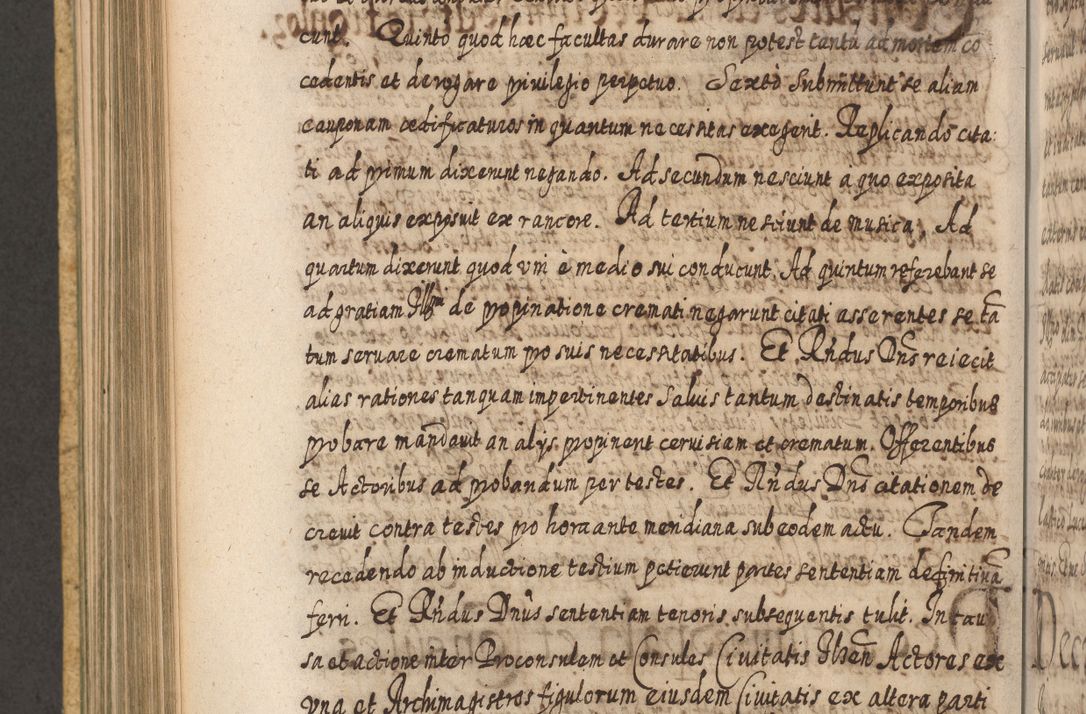 cunt. Quinto quod hæc facultas durare non potest tantũ ad mortem co
cedentis et derogare privilegio perpetuo. Sexto submittunt se aliam
cauponam ædificaturos in quantum necessitas exegerit. Replicando cita:
ti ad primum dixerunt negando. Ad secundum nesciunt a quo exposita
an aliquis exposuit ex rancore. Ad tertium nesciunt de musica. Ad
quartum dixerunt quod uni è medio sui conducunt. Ad quintum referebant se
ad gratiam de propinatione cremati negarunt citati asserentes se tã
tum servare crematum pro suis necessitatibus. Et Rñdus Dñs reiecit
alias rationes tanquam impertinentes salvis tantum destinatis temporibus
probare mandavit an alys propinent cervisiam et crematum. Offerentibus
se Actoribus ad probandum per testes. Et Rñdus Dñs citationem de
crevit contra testes pro hora ante meridiana sub eodem actu. Tandem
recedendo ab inductione testium petierunt partes sententiam definitivã
ferri. Et Rñdus Dñus sententiam tenoris subsequentis tulit. In cau
sa et actione inter Proconsulem et Consules Civitatis Ilzen Actores ex
una et Archimagistros figulorum eiusdem Civitatis ex altera parti